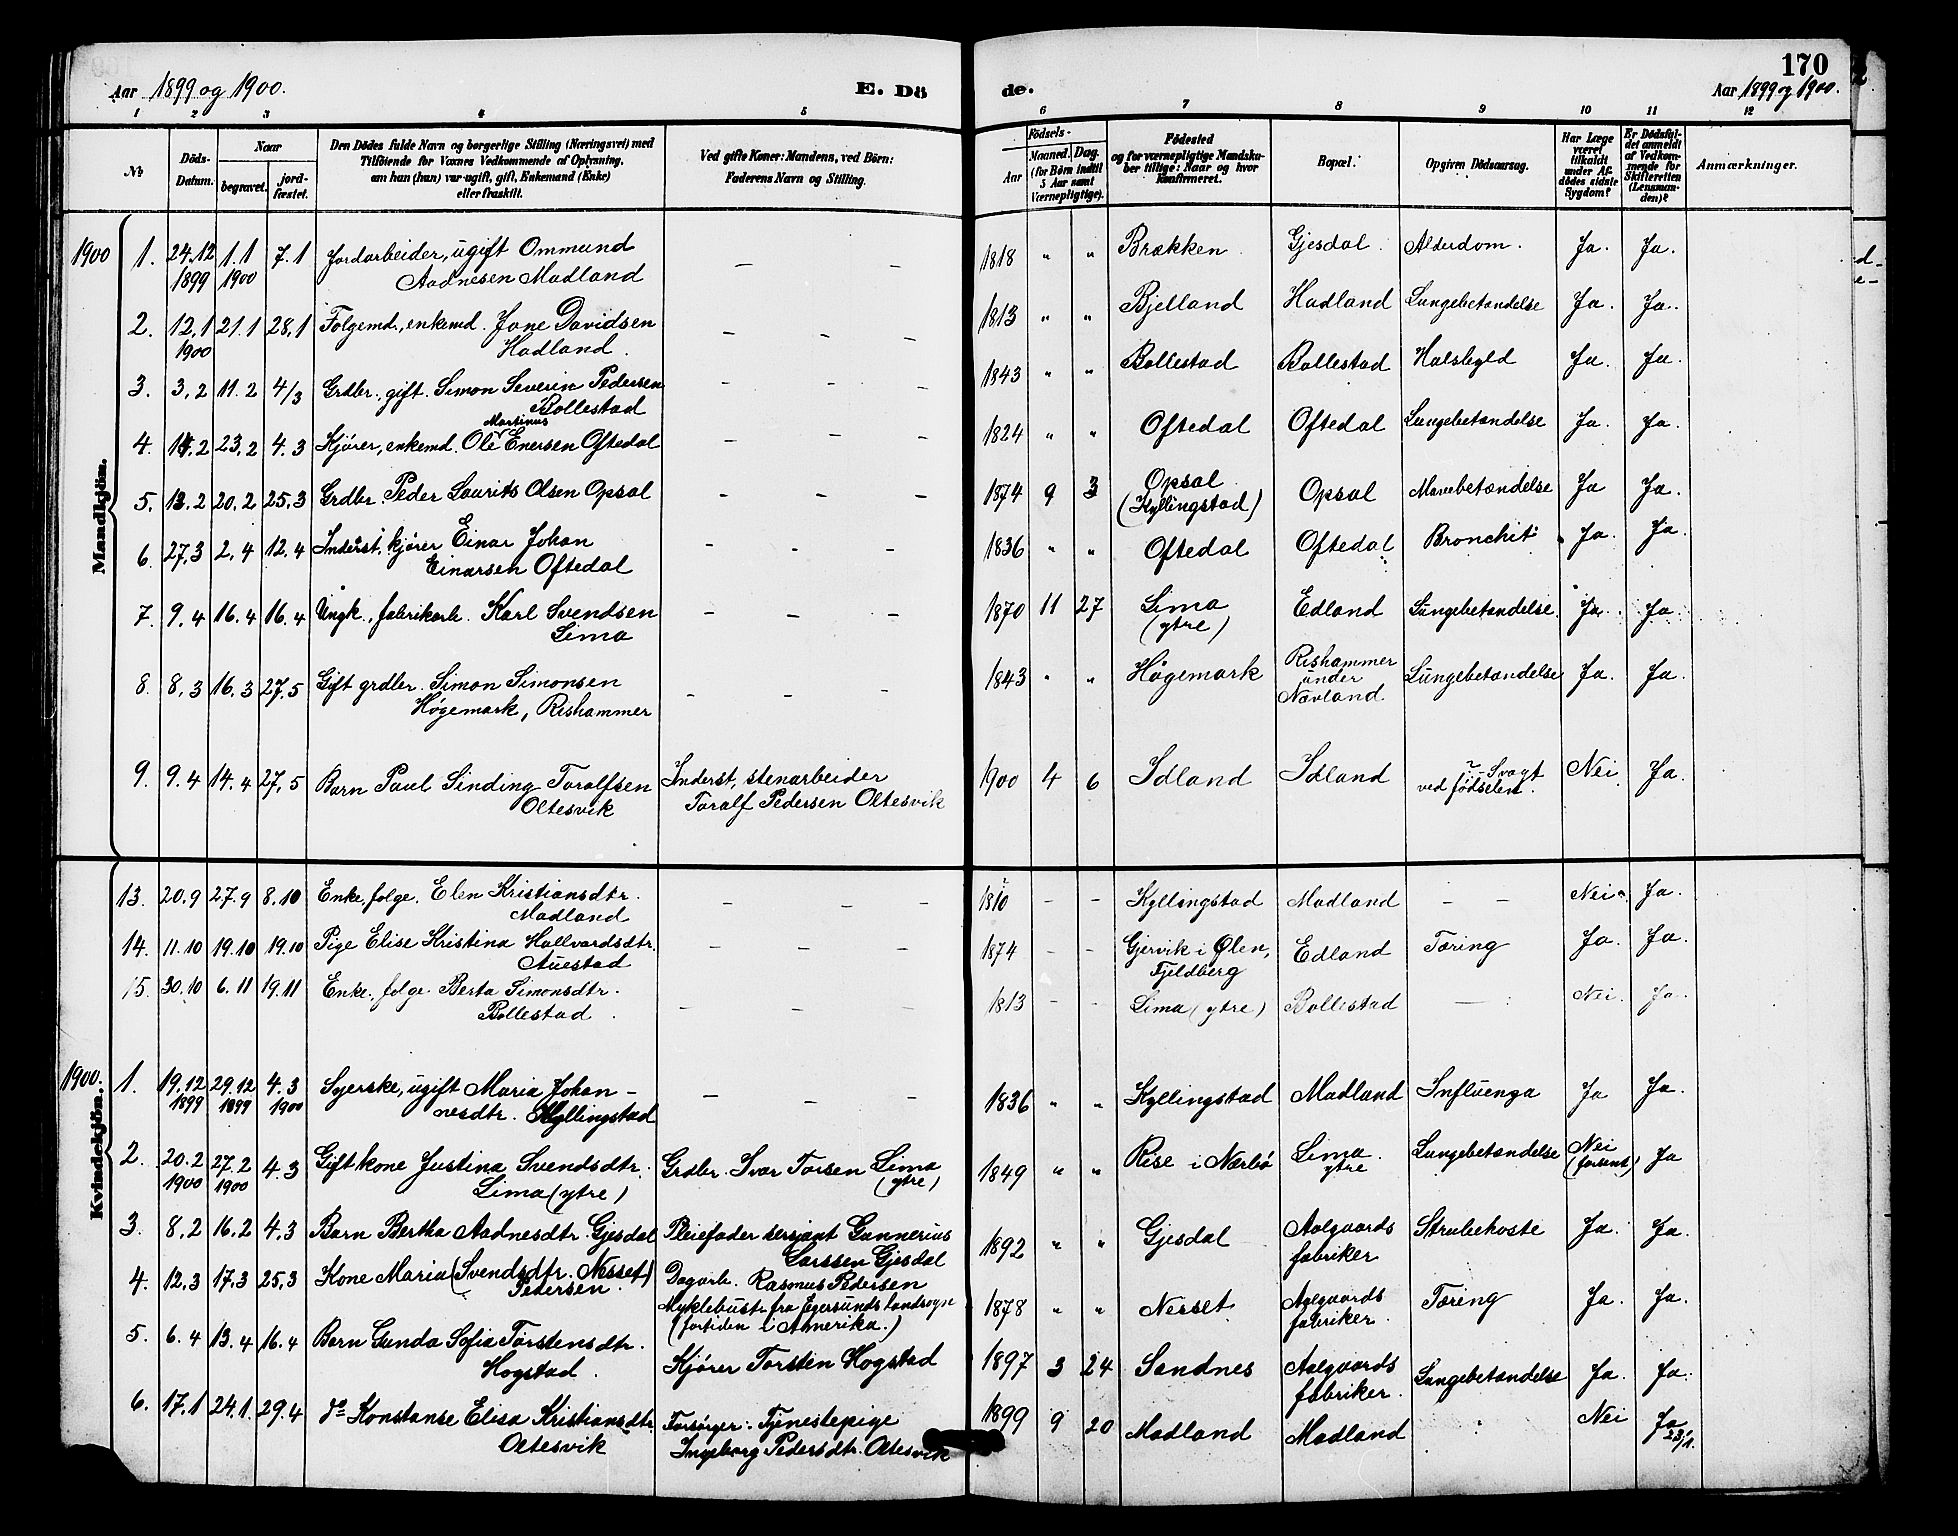 Aar 1899 og 1900.
E. Dö
de.
170
Aar 1899 og 1900.
1 2 3 4 5 6 7 8 9 10 11 12
№
Döds-Datum.
Naar
begravet.
jord-fæstet.
Den Dödes fulde Navn og borgerlige Stilling (Næringsvei) med
Tilföiende for Voxnes Vedkommende af Oplysning,
om han (hun) var ugift, gift, Enkemand (Enke)
eller fraskilt.
Ved gifte Koner: Mandens, ved Börn:
Faderens Navn og Stilling.
Födsels-
Aar
Maaned. Dag.
(for Börn indtil
5 Aar samt
Værnepligtige).
Födested
og for værnepligtige Mandska-
ber tillige: Naar og hvor
konfirmeret.
Bopæl.
Opgiven Dödsaarsag.
Har Læge
været
tilkaldt
under Af-
dödes sidste
Sygdom?
Er Dödsfal-
det anmeldt
af Vedkom-
mende for
Skifteretten
(Lensman-
den)?
Anmærkninger.
Mandkjön.
1900 1. 24.12 1899 1.1 1900 7.1 Jordarbeider, ugift Ommund Aadnesen Madland – – – 1818 " " Brækken Gjesdal. Alderdom. Ja. Ja.
2. 12.1 1900 21.1 28.1 Folgemd., enkemd. Jone Davidsen Hadland. – – – 1813 " " Bjelland Hadland Lungebetændelse Ja. Ja.
3. 3.2 11.2 4/3 Grdbr., gift. Simon Severin Pedersen Bollestad – – – 1843 " " Bollestad Bollestad Halsbyld Ja. Ja.
4. 14.2 23.2 4.3 Kjører, enkemd. Ole Martinus Enersen Oftedal – – – 1824 " " Oftedal Oftedal Lungebetændelse Ja. Ja.
5. 13.2 20.2 25.3 Grdbr. Peder Laurits Olsen Opsal – – – 1874 9 3 Opsal (Kyllingstad) Opsal Mavebetændelse Ja Ja.
6. 27.3 2.4 12.4 Inderst, kjører Einar Johan Einarsen Oftedal – – – 1836 " " Oftedal Oftedal Bronchit Ja. Ja.
7. 9.4 16.4 16.4 Ungk., fabrikarb. Karl Svendsen Lima – – – 1870 11 27 Lima (ytre) Edland Lungebetændelse. Ja. Ja.
8. 8.3 16.3 27.5 Gift grdbr. Simon Simonsen Høgemark, Rishammer – – – 1843 " " Høgemark Rishammer under Nævland. Lungebetændelse Ja. Ja.
9. 9.4 14.4 27.5 Barn Paul Sinding Toralfsen Oltesvik Inderst, stenarbeider Toralf Pedersen Oltesvik 1900 4 6 Idland Idland ? - Svagt ved fødselen. Nei Ja.
Kvindekjön.
13. 20.9 27.9 8.10 Enke, folge. Elen Kristiansdtr. Madland – – – 1810 – – Kyllingstad Madland – – Nei. Ja.
14. 11.10 19.10 19.10 Pige Elise Kristina Hallvardsdtr. Auestad – – – 1874 – – Gjervik i Ølen, Fjeldberg Edland Tæring Ja. Ja.
15. 30.10 6.11 19.11 Enke, folge. Berta Simonsdtr. Bollestad. – – – 1813 – – Lima (ytre) Bollestad – Nei. Ja.
1900. 1. 19.12 1899 29.12 1899 4.3 1900 Syerske, ugift Maria Johan- nesdtr. Kyllingstad – – – 1836 " " Kyllingstad Madland Influenza Ja Ja.
2. 20.2 1900 27.2 1900 4.3 Gift kone Justina Svendsdtr. Lima (ytre) Grdbr. Ivar Torsen Lima (ytre) 1849 " " Rise i Nærbø Lima ytre Lungebetændelse Nei (forsent) Ja
3. 8.2 16.2 4.3 Barn Bertha Aadnesdtr. Gjesdal Pleiefader sersjant Gunnerius Larssen Gjesdal 1892 " " Gjesdal Aalgaards fabriker Strubehoste Ja. Ja.
4. 12.3 17.3 25.3 Kone Maria (Svendsdtr. Nesset) Pedersen. Dagarb. Rasmus Pedersen Myklebust fra Egersunds landsogn (fortiden i Amerika.) 1878 " " Nesset Aalgaards fabriker. Tæring Ja. Ja.
5. 6.4 13.4 16.4 Barn Gunda Sofia Torstensdtr. Hogstad. Kjører Torsten Hogstad 1897 3 24 Sandnes Aalgaards fabriker. Lungebetændelse Ja. Ja.
6. 17.1 24.1. 29.4 do Konstanse Elisa Kristiansdtr. Oltesvik Forsørger: Tjenestepige Ingeborg Pedersdtr. Oltesvik 1899 9 20 Madland Madland Nei Ja 23/1.